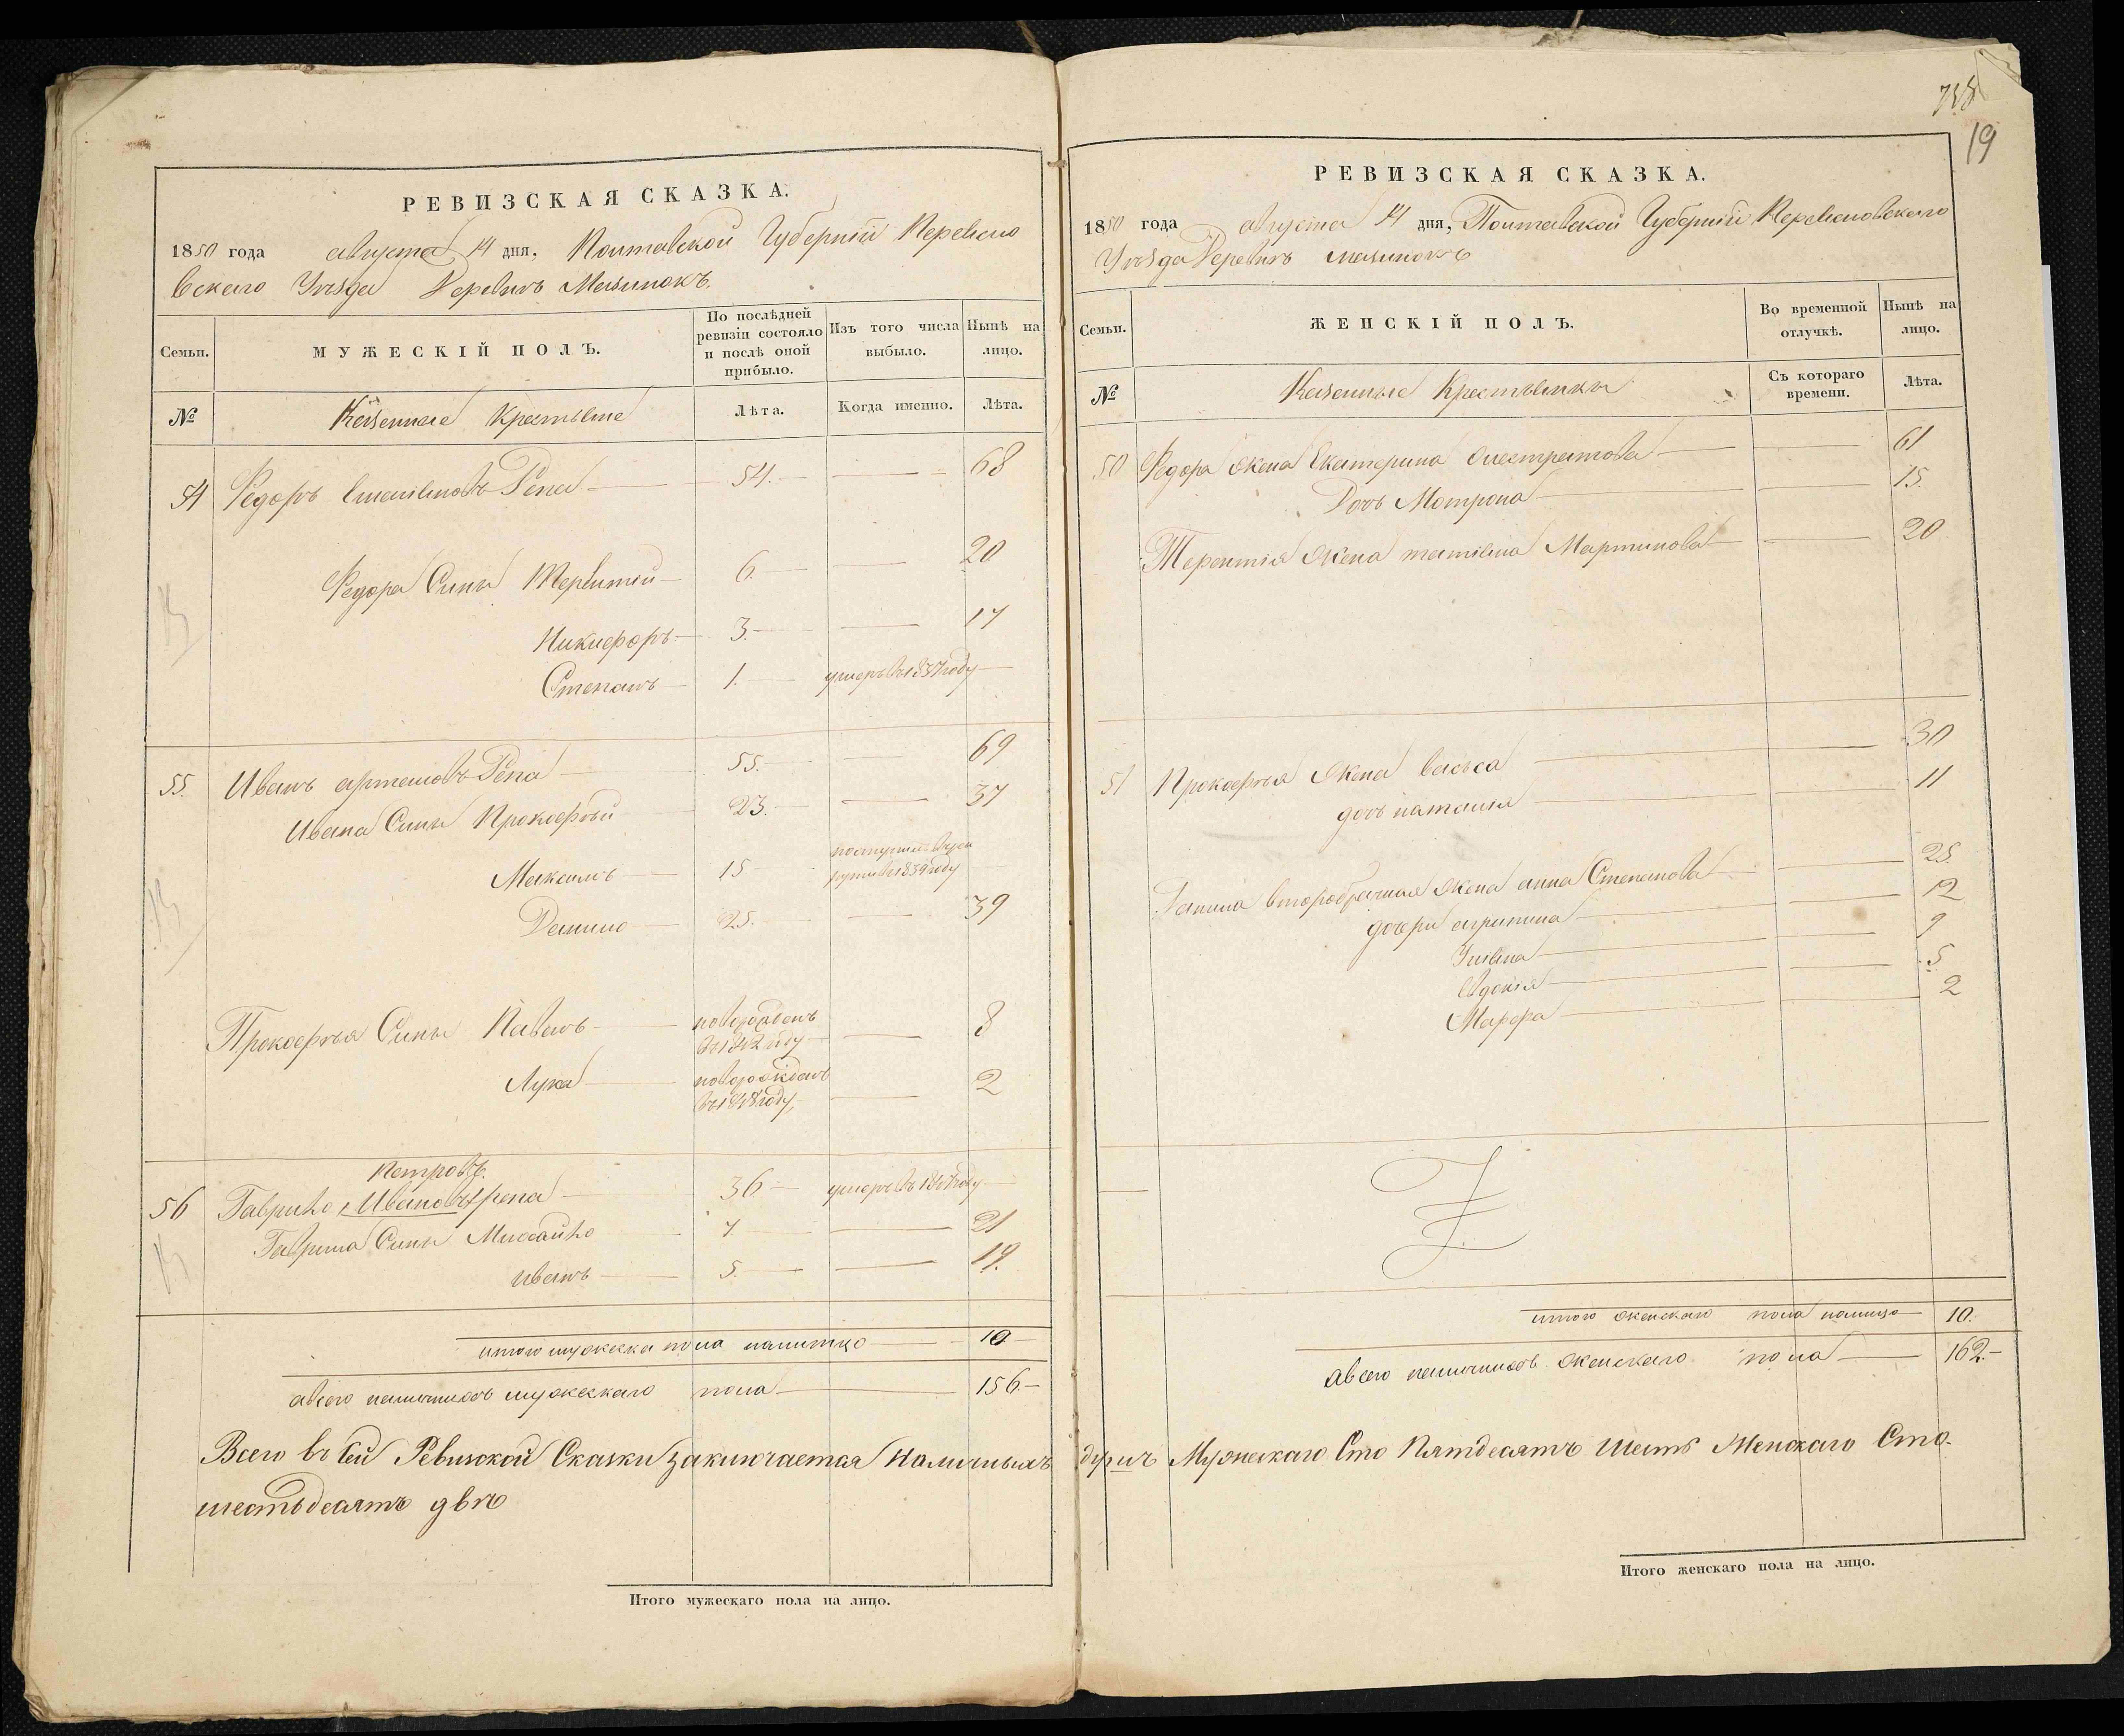 РЕВИЗСКАЯ СКАЗКА.
1850 года августа 14 дня, Полтавской Губерніи Переясло
вскаго Уезда Деревнѣ Мазинокъ.
Семьи.
МУЖЕСКІЙ ПОЛЪ.
По послѣдней ревизіи состояло и послѣ оной прибыло.
Изъ того числа выбыло.
Нынѣ на лицо.
№
Казенные Крестьяне
Лѣта.
Когда именно.
Лѣта.
54 Федоръ Репа 54. 68
Федора Сины Терентій 6. 20
Никифоръ 3. 17
Степанъ 1. умеръ въ 1837 году
55. Иванъ артемовъ Репа 55. 69
Ивана Сины Прокофый 23. 37
Максимъ 15 поступилъ в рек
руты в 1839 году
Данило 25. 39
Прокофья Сины Павелъ новорожденъ 8
въ 1842 году
Лука новорожденъ 2
въ 1848 году
Петровъ.
56 Гаврило Ивановъ репа 36. умеръ въ году
Гаврила Сины Михайло 7 21
иванъ 5. 19.
итого мужеска пола налицо 10
авсего наличнихъ мужескаго пола 156.
Всего въ сей Ревизской Сказки заключается Наличныхъ
шестьдесятъ двѣ
Итого мужескаго пола на лицо.
738
19
РЕВИЗСКАЯ СКАЗКА.
1850 года августа 14 дня, Полтавской Губерніи Переясловскаго
Уезда Деревнѣ мазинокъ
Семьи.
ЖЕНСКІЙ ПОЛЪ.
Во временной отлучкѣ.
Нынѣ на лицо.
№
Казенные Крестьянки
Съ котораго времени.
Лѣта.
50 Федора Жена Екатерина 61
Дочь Мотрона 15.
Терентія Жена татіяна Мартинова 20
51 Прокофья Жена васъса 30
дочь наталія 11
Данила второбрачная Жена анна Степанова 25.
дочери агрипина 12
Уліяна 9
Евдокія 5
Марфа 2
итого женскаго пола налицо 10.
авсего наличнихъ женскаго пола 162.
душъ Мужескаго Сто Пятдесятъ Шесть Женскаго Сто.
Итого женскаго пола на лицо.